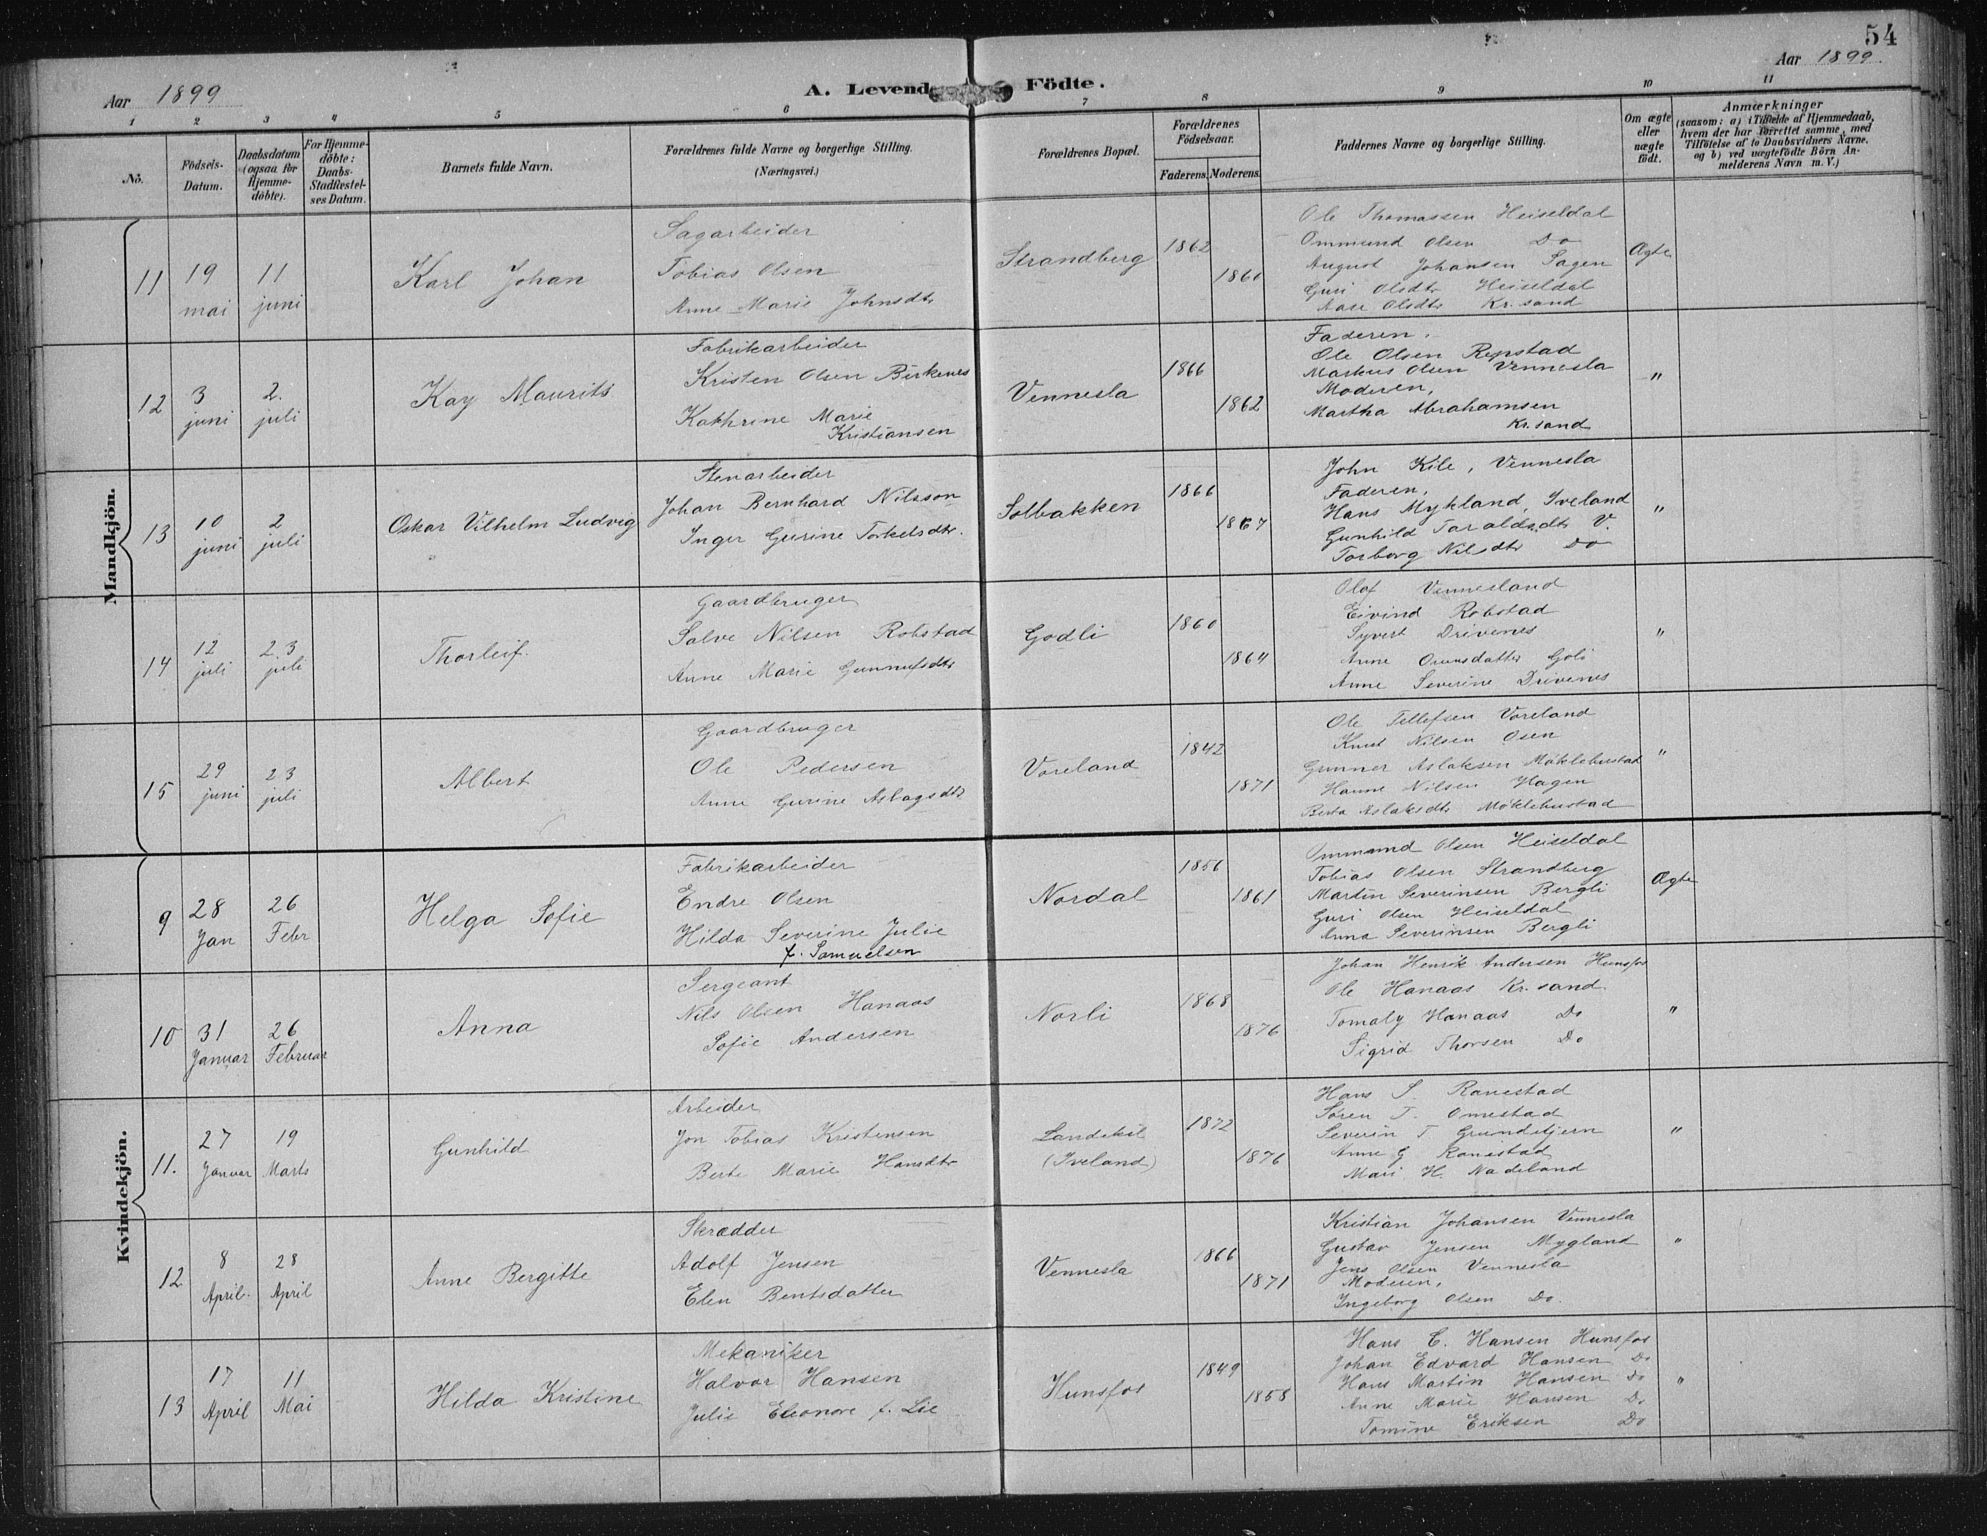 54
Aar 1899
A. Levende Födte.
Aar 1899.
1 2 3 4 5 6 7 8 9 10 11
No.
Födsels-Datum.
Daabsdatum (ogsaa for Hjemme-döbte).
For Hjemme-döbte: Daabs-Stadfæstel-ses Datum.
Barnets fulde Navn.
Forældrenes fulde Navne og borgerlige Stilling.
(Næringsvei.)
Forældrenes Bopæl.
Forældrenes Födselsaar.
Faderens. Moderens.
Faddernes Navne og borgerlige Stilling.
Om ægte eller uægte födt.
Anmærkninger
(saasom: a) i Tilfælde af Hjemmedaab,
hvem der har forrettet samme, med
Tilföielse af to Daabsvidners Navne,
og b) ved uægtefödte Börn An-
melderens Navn m. V.)
Mandkjön.
11
19 mai
11 juni
Karl Johan
Sagarbeider
Tobias Olsen
Anne Marie Johnsdtr
Strandberg
1862
1860
Ole Thomassen Heiseldal
Ommund Olsen Do
August Johansen Sagen
Guri Olsdtr Heiseldal
Aase Olsdtr Kr.sand
Ægte
12
3 juni
2. juli
Kay Maurits
Fabrikarbeider
Kristen Olsen Birkenes
Kathrine Marie
Kristiansen
Vennesla
1866
1862
Faderen.
Ole Olsen Repstad
Markus Olsen Vennesla
Moderen,
Martha Abrahamsen
Kr.sand
"
13
10 juni
2 juli
Oskar Vilhelm Ludvig
Stenarbeider
Johan Bernhard Nilsson
Inger Gurine Torkelsdtr.
Solbakken
1866
1867
John Kile, Vennesla
Faderen,
Hans Mykland, Iveland
Gunhild Taraldsdtr V.
Torborg Nilsdtr Do
"
14
12 juli
23 juli
Thorleif.
Gaardbruger
Salve Nilsen Robstad
Anne Marie Gunnufsdtr
Godli
1860
1864
Olaf Vennesland
Eivind Robstad
Syvert Drivenes
Anne Goli
Anne Severine Drivenes
"
15
29 juni
23 juli
Albert
Gaardbruger
Ole Pedersen
Anne Gurine Aslagsdtr
Voreland
1842
1871
Ole Tellefsen Voreland
Knut Nilsen Osen
Gunner Aslaksen Möklebustad
Hanne Nilsen Hagen
Berta Aslaksdtr Möklebustad
"
Kvindekjön.
9
28 Jan
26 Febr
Helga Sofie
Fabrikarbeider
Endre Olsen
Hilda Severine Julie
f. Samuelsen
Nordal
1856
1861
Ommund Olsen Heiseldal
Tobias Olsen Strandberg
Martin Severinsen Bergli
Guri Olsen Heiseldal
Anna Severinsen Bergli
Ægte
10
31 Januar
26 Februar
Anna
Sergeant
Nils Olsen Hanaas
Sofie Andersen
Norli
1868
1876
Johan Henrik Andersen Hunsfos
Ole Hanaas Kr.sand.
Tomaly Hanaas Do
Sigrid Thorsen Do
"
11.
27 Januar
19 Marts
Gunhild
Arbeider
Jon Tobias Kristensen
Berte Marie Hansdtr
Landskil
(Iveland)
1872
1876
Hans S. Ranestad
Søren T. Omestad
Severin T Grundetjern
Anne G Ranestad
Mari H. Nadeland
"
12
8 April.
28 April
Anne Bergitte
Skrædder
Adolf Jensen
Elen Bentsdatter
Vennesla
1866
1871
Kristian Johansen Vennesla
Gustav Jensen Mygland
Jens Olsen Vennesla
Moderen,
Ingeborg Olsen Do.
"
13
17 April
11 Mai
Hilda Kristine
Mekaniker
Halvor Hansen
Julie Eleonore f. Lie
Hunsfos
1849
1858
Hans C. Hansen Hunsfos
Johan Edvard Hansen Do
Hans Martin Hansen Do
Anne Marie Hansen Do
Tomine Eriksen Do
"